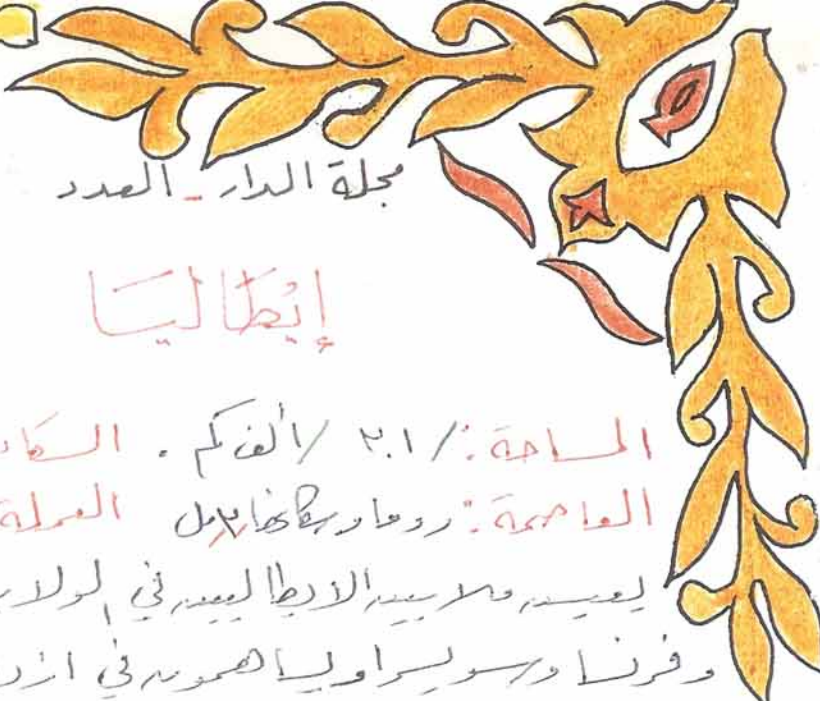 مجلة الدار - العدد
إيطاليا
المساحة: /٣٠١/ ألف كم . السكا
العاصمة: روما وسكانها ٣ مل العملة
يعيش ملايين الايطاليين في الولا
وفرنسا وسويسرا ويساهمون في ازد